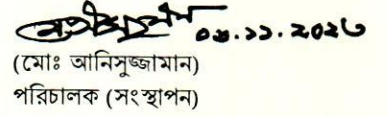 ০৯.১১.২০২৩
(মোঃ আনিসুজ্জামান)
পরিচালক (সংস্থাপন)